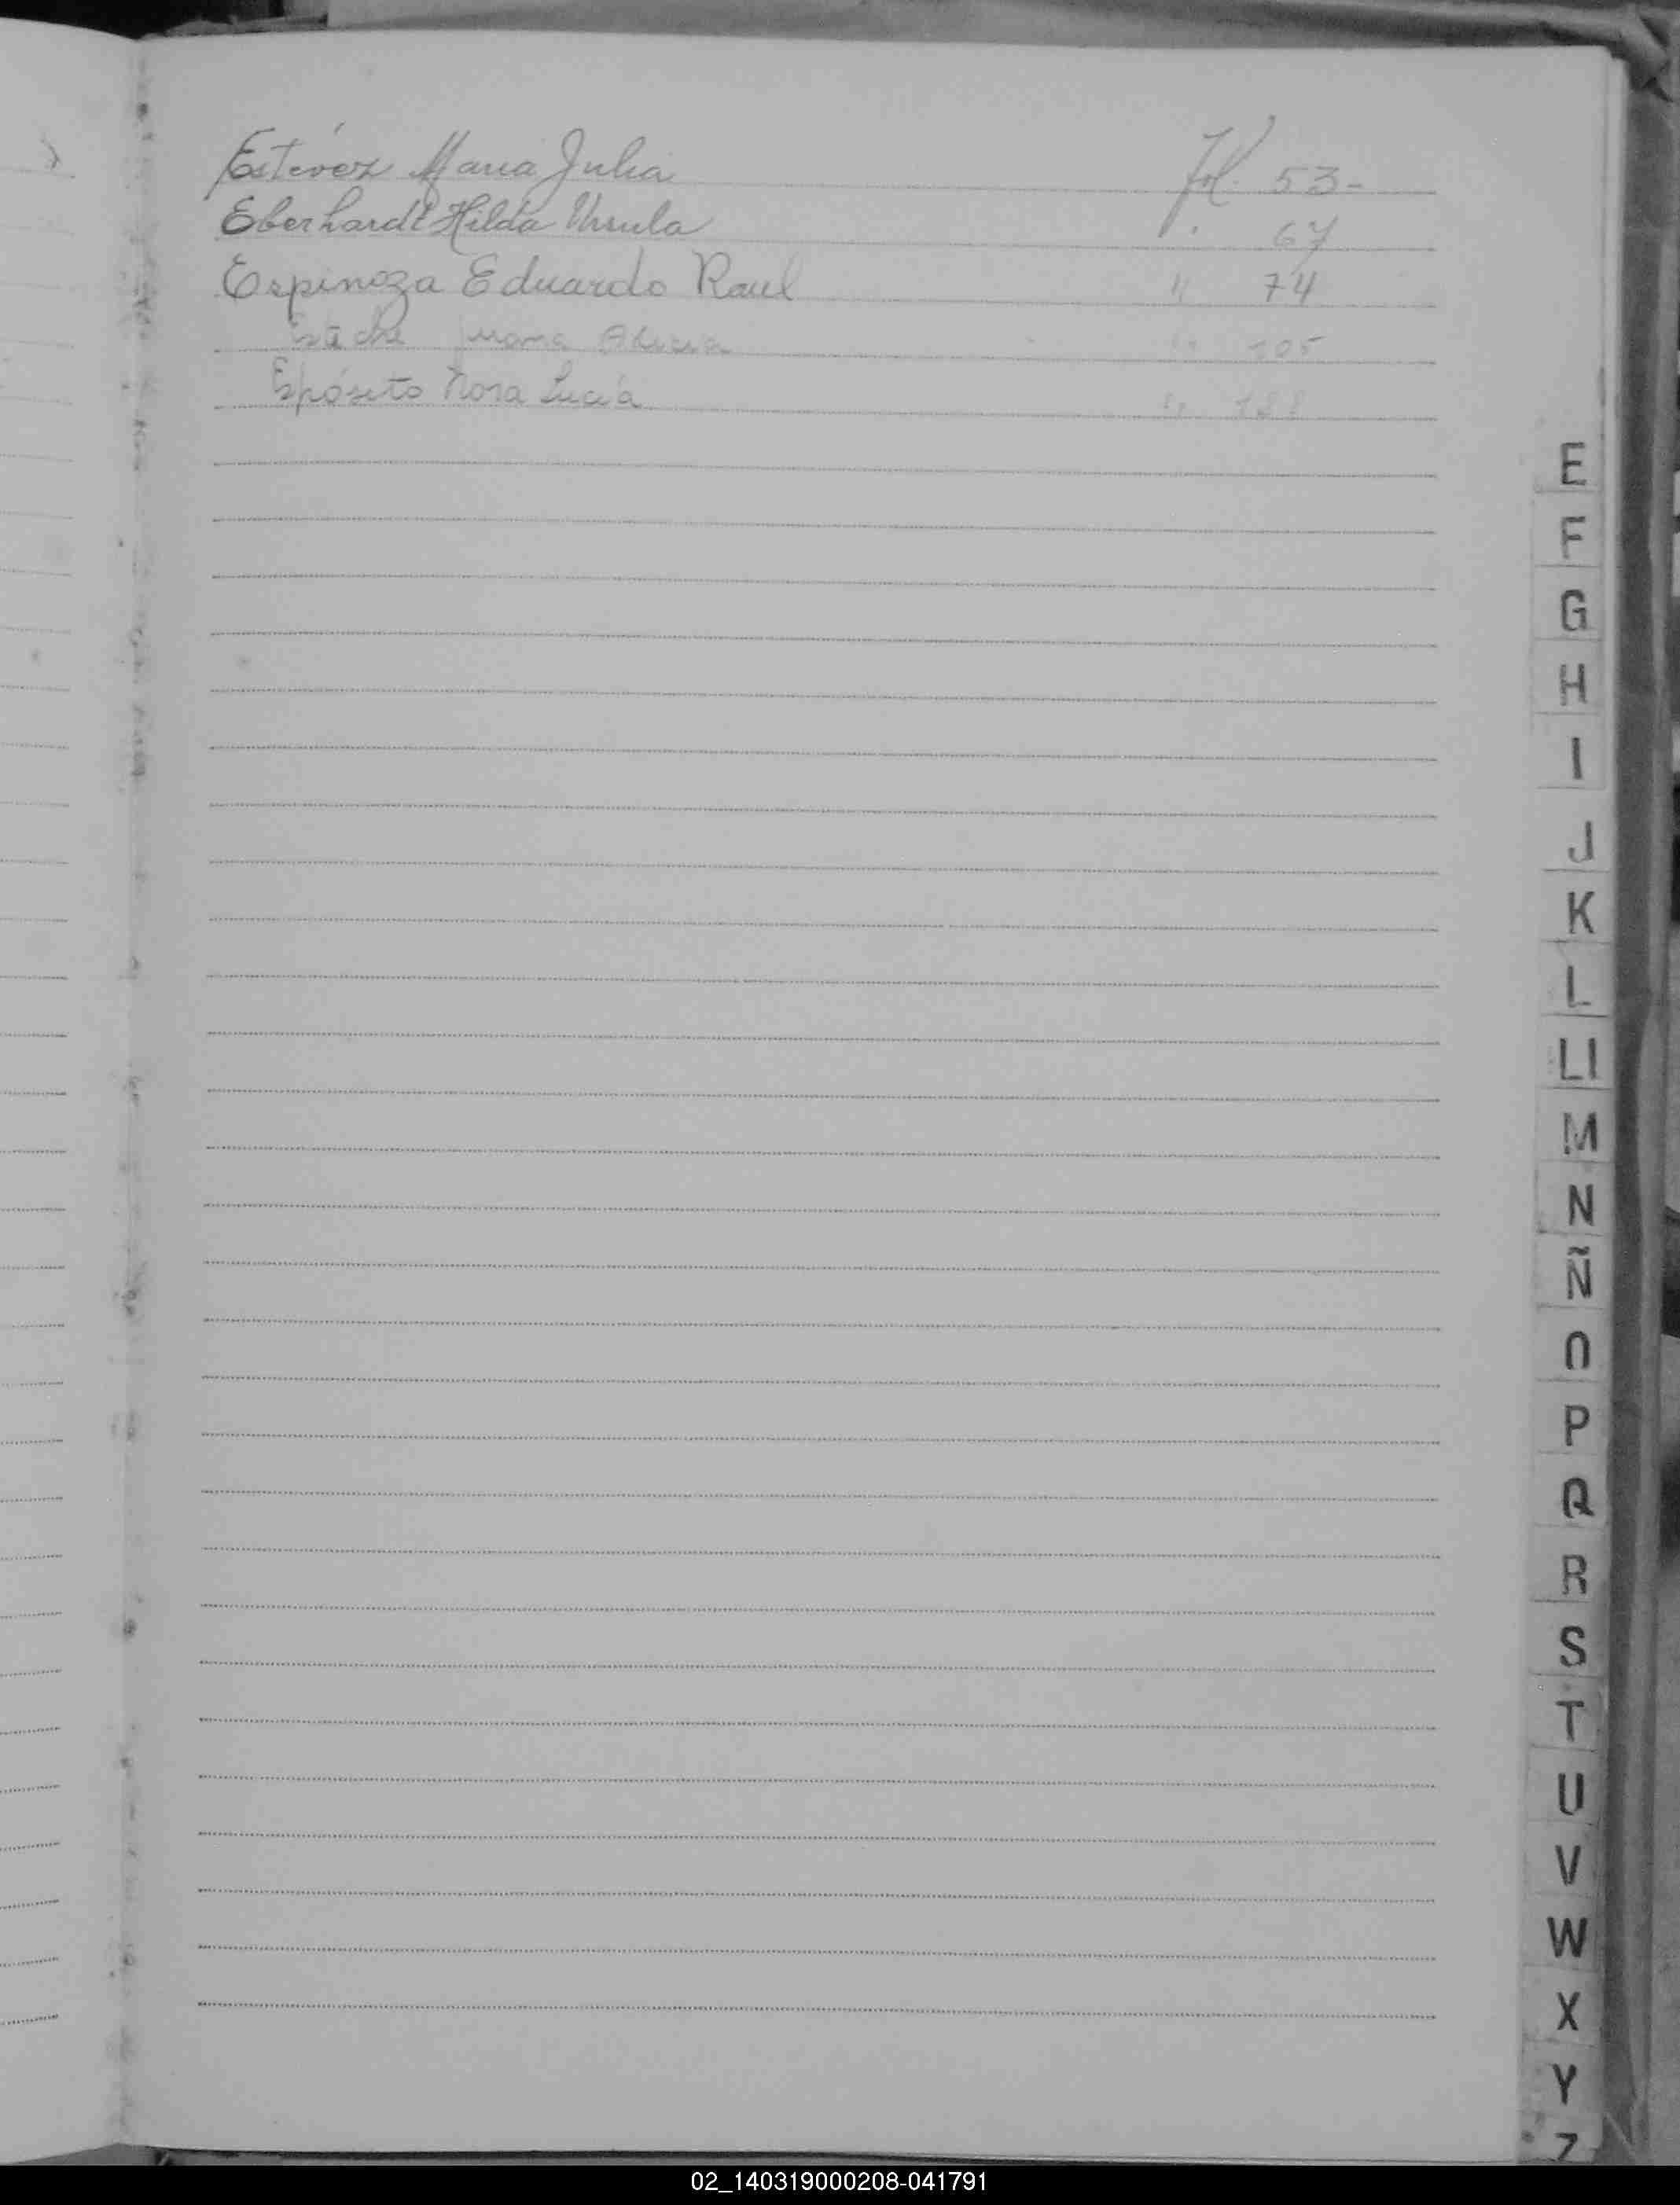 Estévez Maria Julia Fol. 53-
Eberhardt Hilda Ursula " 67
Espinoza Eduardo Raul " 74
Juana " 105
Espósito Nora Lucía "
E
F
G
H
I
J
K
L
Ll
M
N
Ñ
O
P
Q
R
S
T
U
V
W
X
Y
Z
02_140319000208-041791